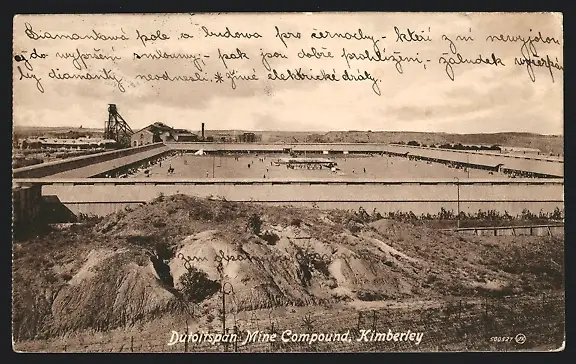 Diamantové pole a budova pro černochy - kteří z ní nevyjdou
až do vypršení smlouvy - pak jsou dobře prohlíženi, - žaludek vyčerpán
by diamanty neodnesli * jiné elektrické dráty
zem
Dutoitspan Mine Compound, Kimberley
500527 JV